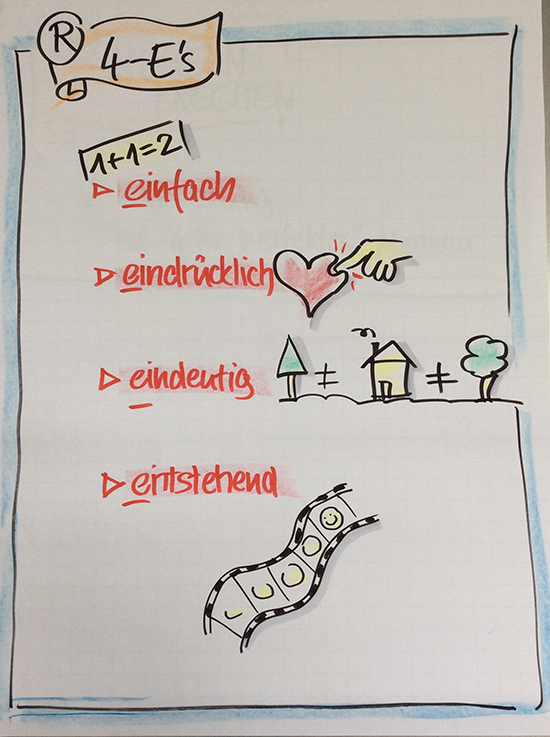 R
4-E's
1+1=2
▷ einfach
▷ eindrücklich
▷ eindeutig ≠ ≠
▷ entstehend